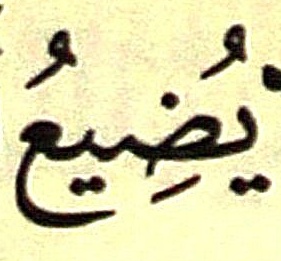 يُضِيعُ